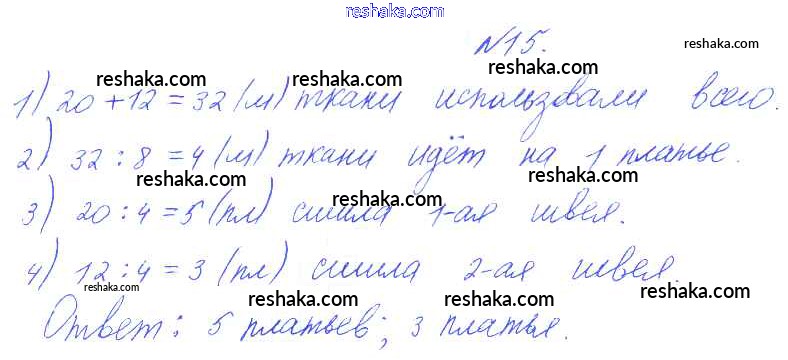 reshaka.com
№15.
reshaka.com
reshaka.com reshaka.com reshaka.com
1) 20 + 12 = 32 (м) ткани использовали всего.
reshaka.com reshaka.com
2) 32 : 8 = 4 (м) ткани идёт на 1 платье.
reshaka.com reshaka.com reshaka.com
3) 20 : 4 = 5 (пл) сшила 1-ая швея.
reshaka.com reshaka.com
4) 12 : 4 = 3 (пл) сшила 2-ая швея.
reshaka.com reshaka.com reshaka.com
Ответ: 5 платьев; 3 платья.
reshaka.com reshaka.com